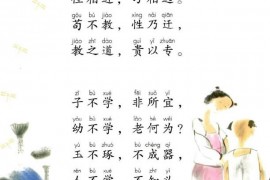 gǒu bú jiào xìng nǎi qiān
苟不教，性乃迁。
jiào zhī dào guì yǐ zhuān
教之道，貴以专。
zǐ bù xué fēi suǒ yí
子不学，非所宜，
yòu bù xué lǎo hé wéi
幼不学，老何为？
yù bù zhuó bù chéng qì
玉不琢，不成器，